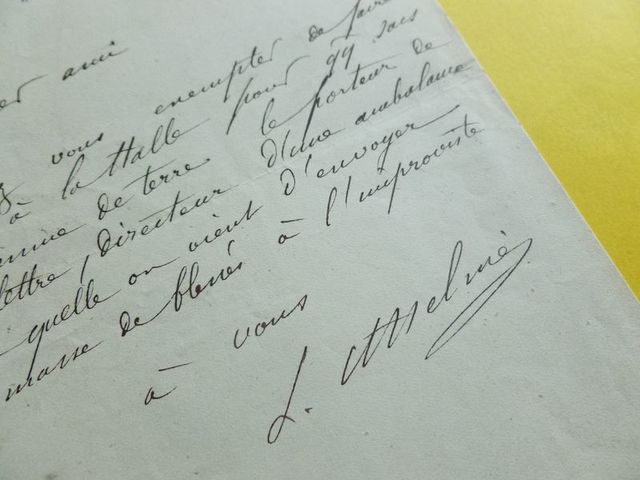 er ami
vous exempter de faire
à la Halle pour qq sacs
de terre. le porteur de
lettre, directeur d'une ambulance
quelle on vient d'envoyer
masse de blessés à l'improviste
à vous